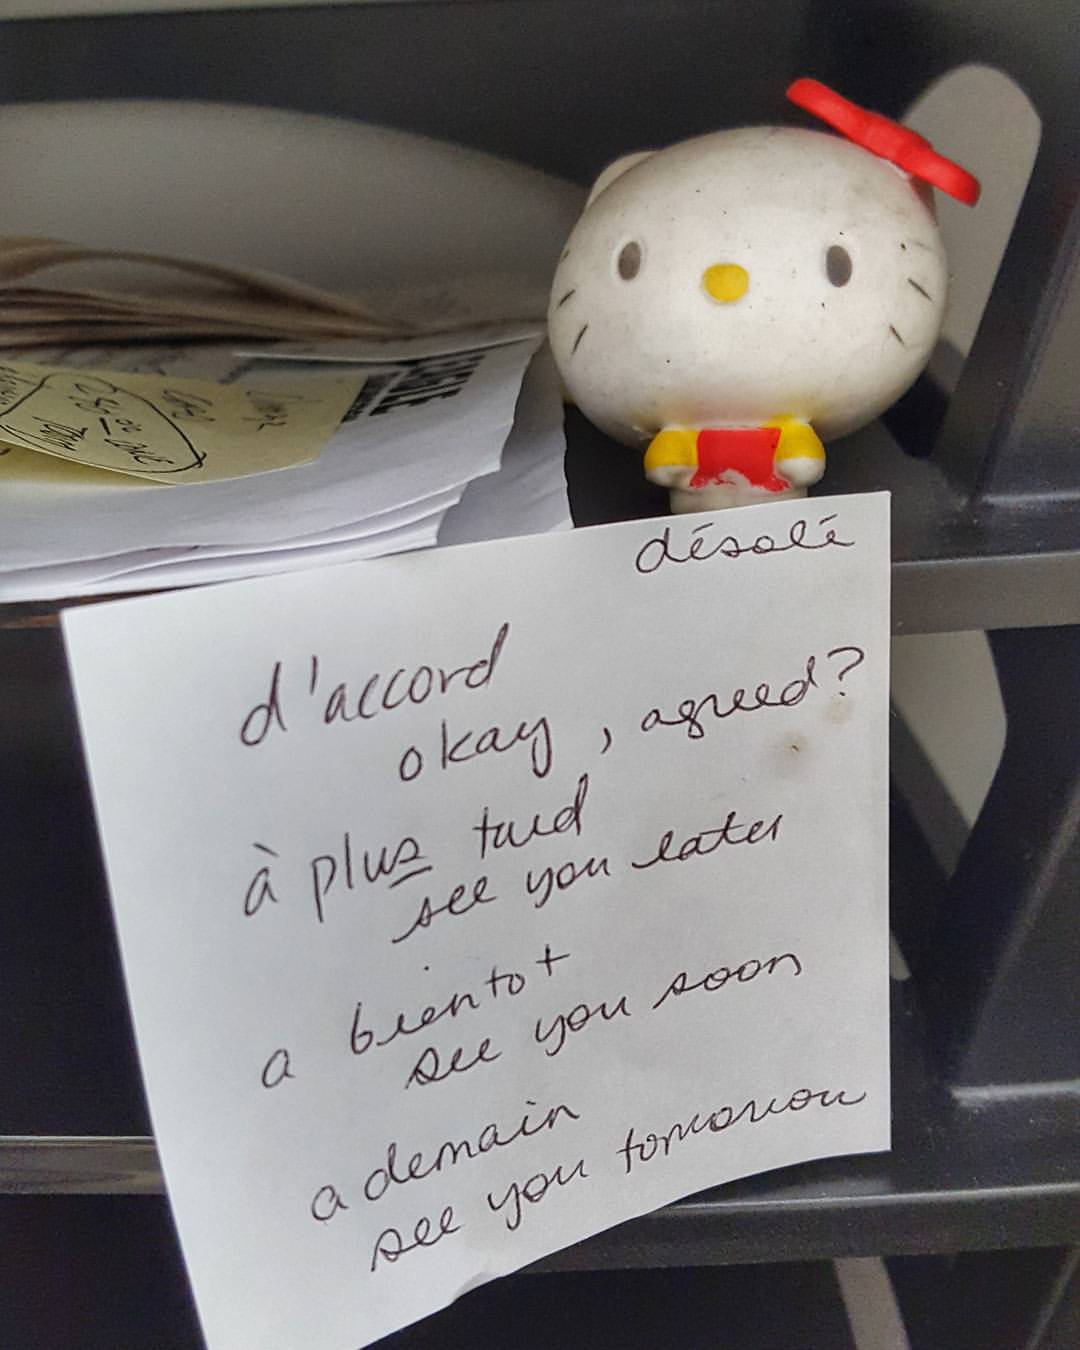 désolé
d'accord
okay, agreed?
à plus tard
see you later
a bientot
see you soon
a demain
see you tomorrow